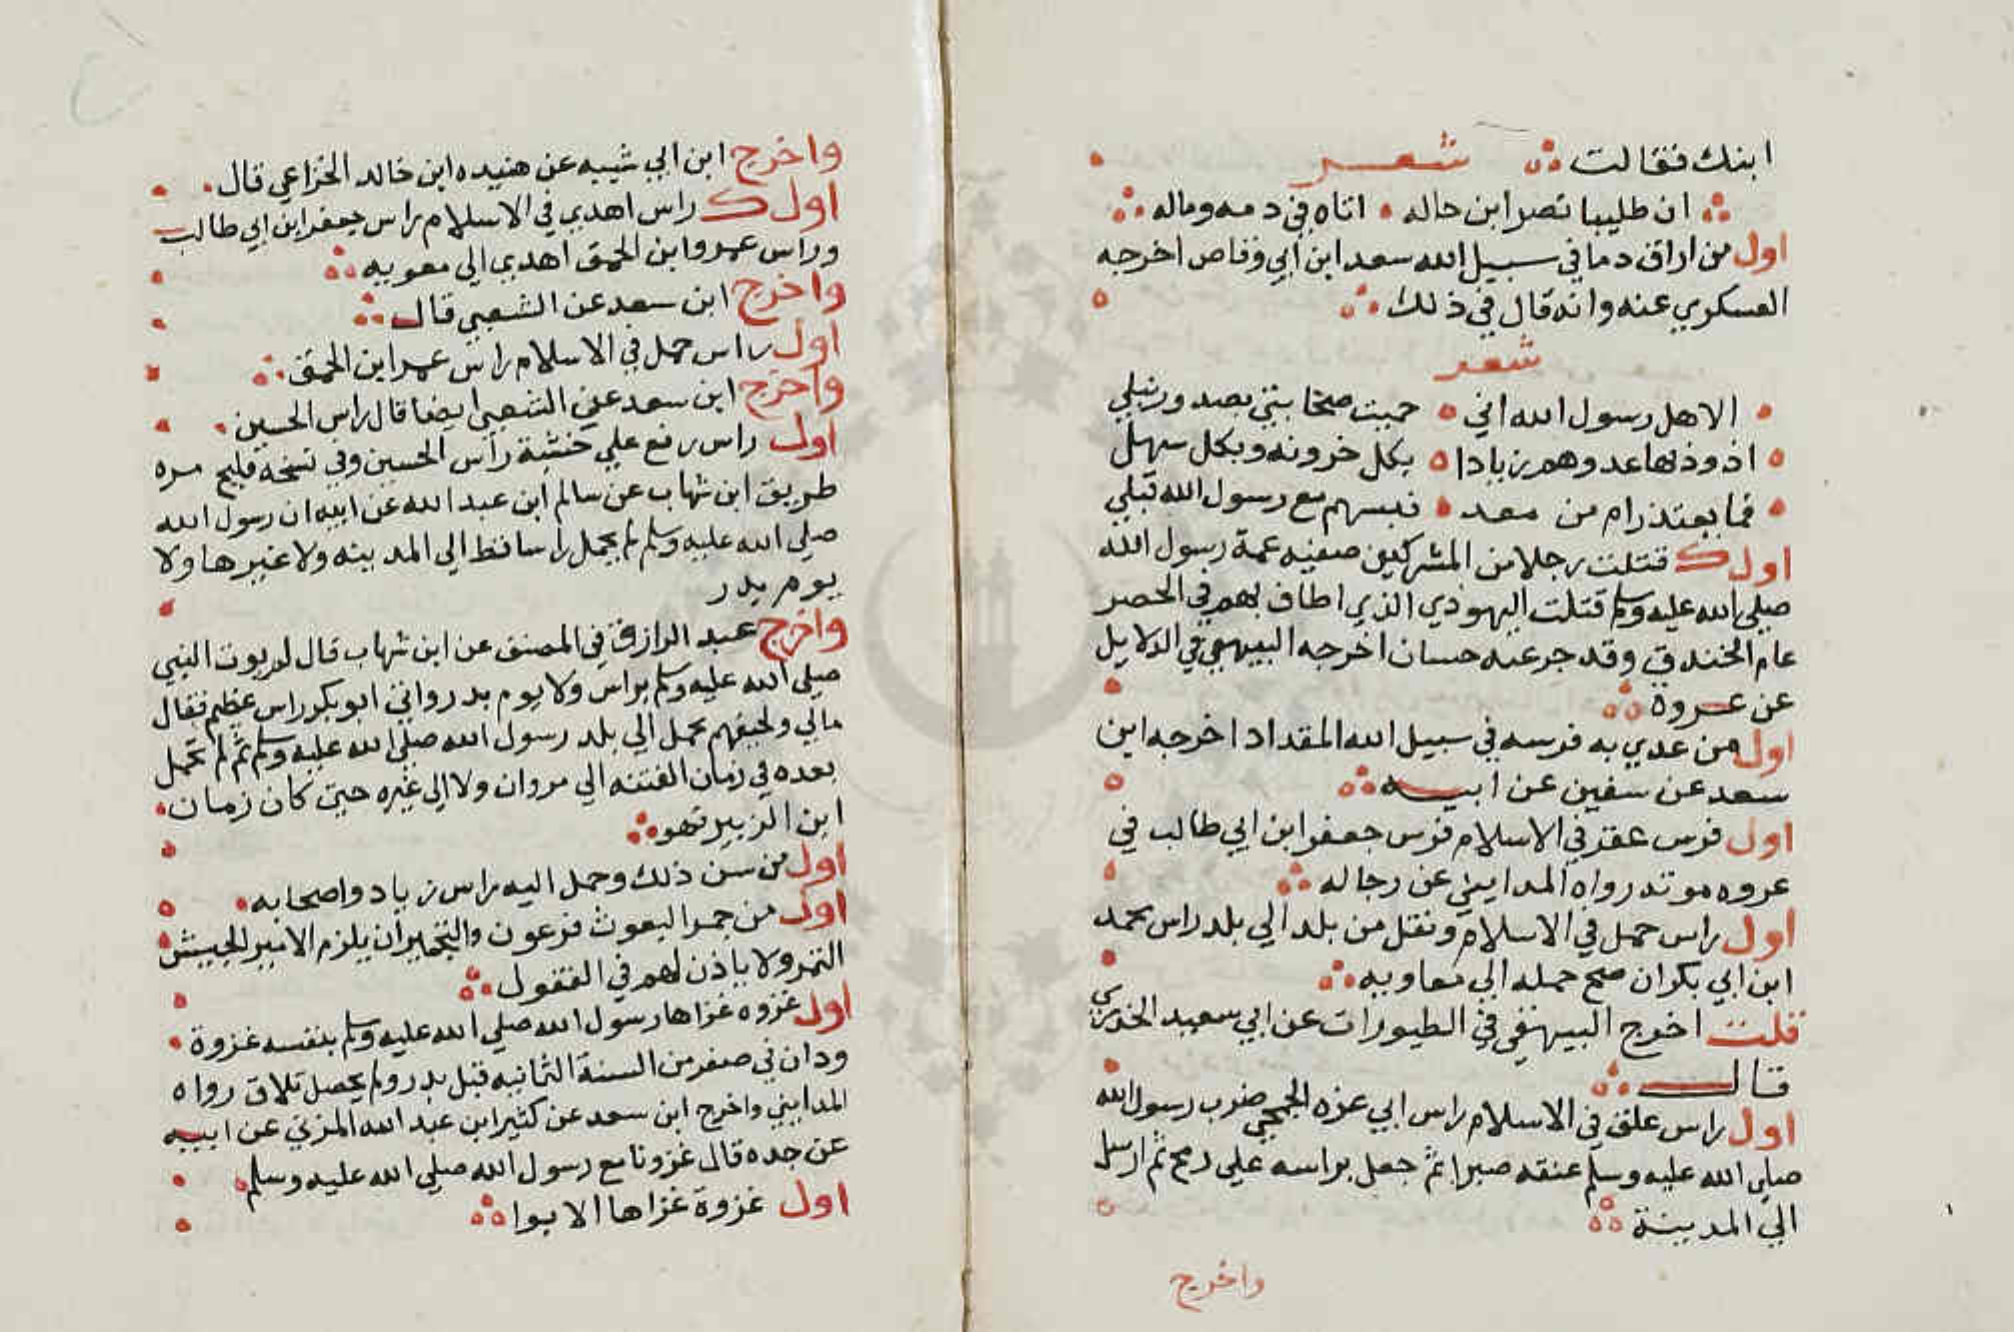 ابنك فقالت شعر
ان طليبا نصر ابن خاله اتاه في دمه وماله
اول من اراق دما في سبيل الله سعد ابن ابي وقاص اخرجه
العسكري عنه وانه قال في ذلك
شعر
الاهل رسول الله اني حميت صحابتي بصدور نبلي
اذود بها عدوهم زيادا بكل حزونه وبكل سهل
فما يعتد رام من معد بسهم مع رسول الله قبلي
اول قتلت رجلا من المشركين صفيه عمة رسول الله
صلي الله عليه وسلم قتلت اليهودي الذي اطاف بهم في الحصر
عام الخندق وقد جر عنه حسان اخرجه البيهقي في الدلايل
عن عروة
اول من عدي به فرسه في سبيل الله المقداد اخرجه ابن
سعد عن سفين عن ابيه
اول فرس عقر في الاسلام فرس جعفر ابن ابي طالب في
غزوه موته رواه المدايني عن رجاله
اول راس حمل في الاسلام ونقل من بلد الي بلد راس محمد
ابن ابي بكر ان صح حمله الي معاويه
قلت اخرج البيهقي في الطيورات عن ابي سعيد الخدري
قال
اول راس علق في الاسلام راس ابي عزه الجمحي ضرب رسول الله
صلي الله عليه وسلم عنقه صبرا ثم جعل براسه علي رمح ثم ارسل
الي المدينة
واخرج
واخرج ابن ابي شيبه عن هنيده ابن خالد الخزاعي قال
اول راس اهدي في الاسلام راس جعفر ابن ابي طالب
وراس عمرو ابن الحمق اهدي الي معويه
واخرج ابن سعد عن الشعبي قال
اول راس حمل في الاسلام راس عمر ابن الحمق
واخرج ابن سعد عن الشعبي ايضا قال راس الحسين
اول راس رفع علي خشبة راس الحسين وفي نسخة
طريق ابن شهاب عن سالم ابن عبد الله عن ابيه ان رسول الله
صلي الله عليه وسلم لم يحمل راسا قط الي المدينه ولا غيرها ولا
يوم بدر
واخرج عبد الرازق في المصنف عن ابن شهاب قال لم يوت النبي
صلي الله عليه وسلم براس ولا يوم بدر واتي ابو بكر راس عظيم فقال
مالي ولجيفهم تحمل الي بلد رسول الله صلي الله عليه وسلم ثم لم تحمل
بعده في زمان الفتنه الي مروان ولا الي غيره حتي كان زمان
ابن الزبير فهو
اول من سن ذلك وحمل اليه راس زياد واصحابه
اول من جمر البعوث فرعون والتجمير ان يلزم الامير الجيش
الثغر ولا ياذن لهم في القفول
اول غزوه غزاها رسول الله صلي الله عليه وسلم بنفسه غزوة
ودان في صفر من السنة الثانيه قبل بدر ولم يحصل تلاق رواه
المدايني واخرج ابن سعد عن كثير ابن عبد الله المزني عن ابيه
عن جده قال غزونا مع رسول الله صلي الله عليه وسلم
اول غزوة غزاها الابوا